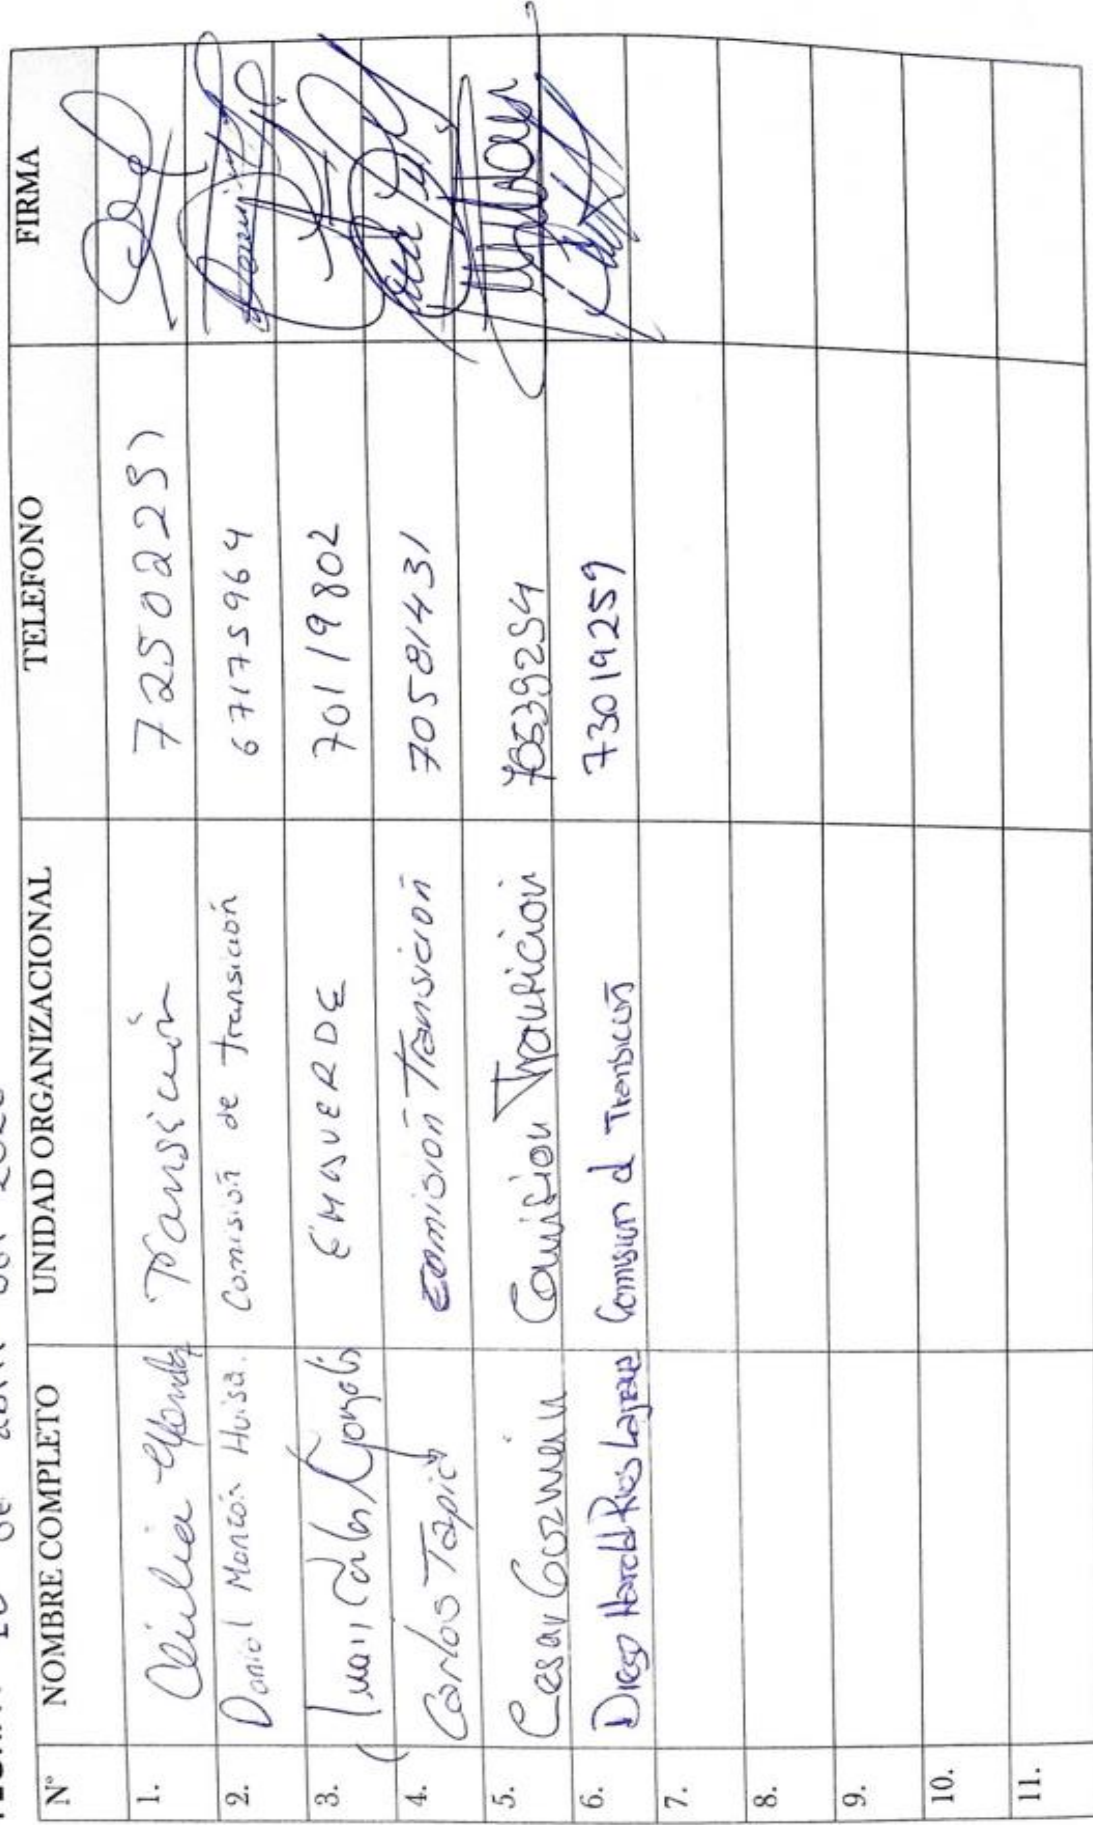 N° NOMBRE COMPLETO UNIDAD ORGANIZACIONAL TELEFONO FIRMA
1. Transición 7250225
2. Daniel Mancón Huisa. Comisión de transición 67175964
3. Juan Carlos Gonzales EMAVERDE 70119802
4. Carlos Tapia Comisión Transición 70581431
5. Cesar Guzman Comision Transicion 70539254
6. Diego Harold Rios Comision d Transición 73019259
7.
8.
9.
10.
11.